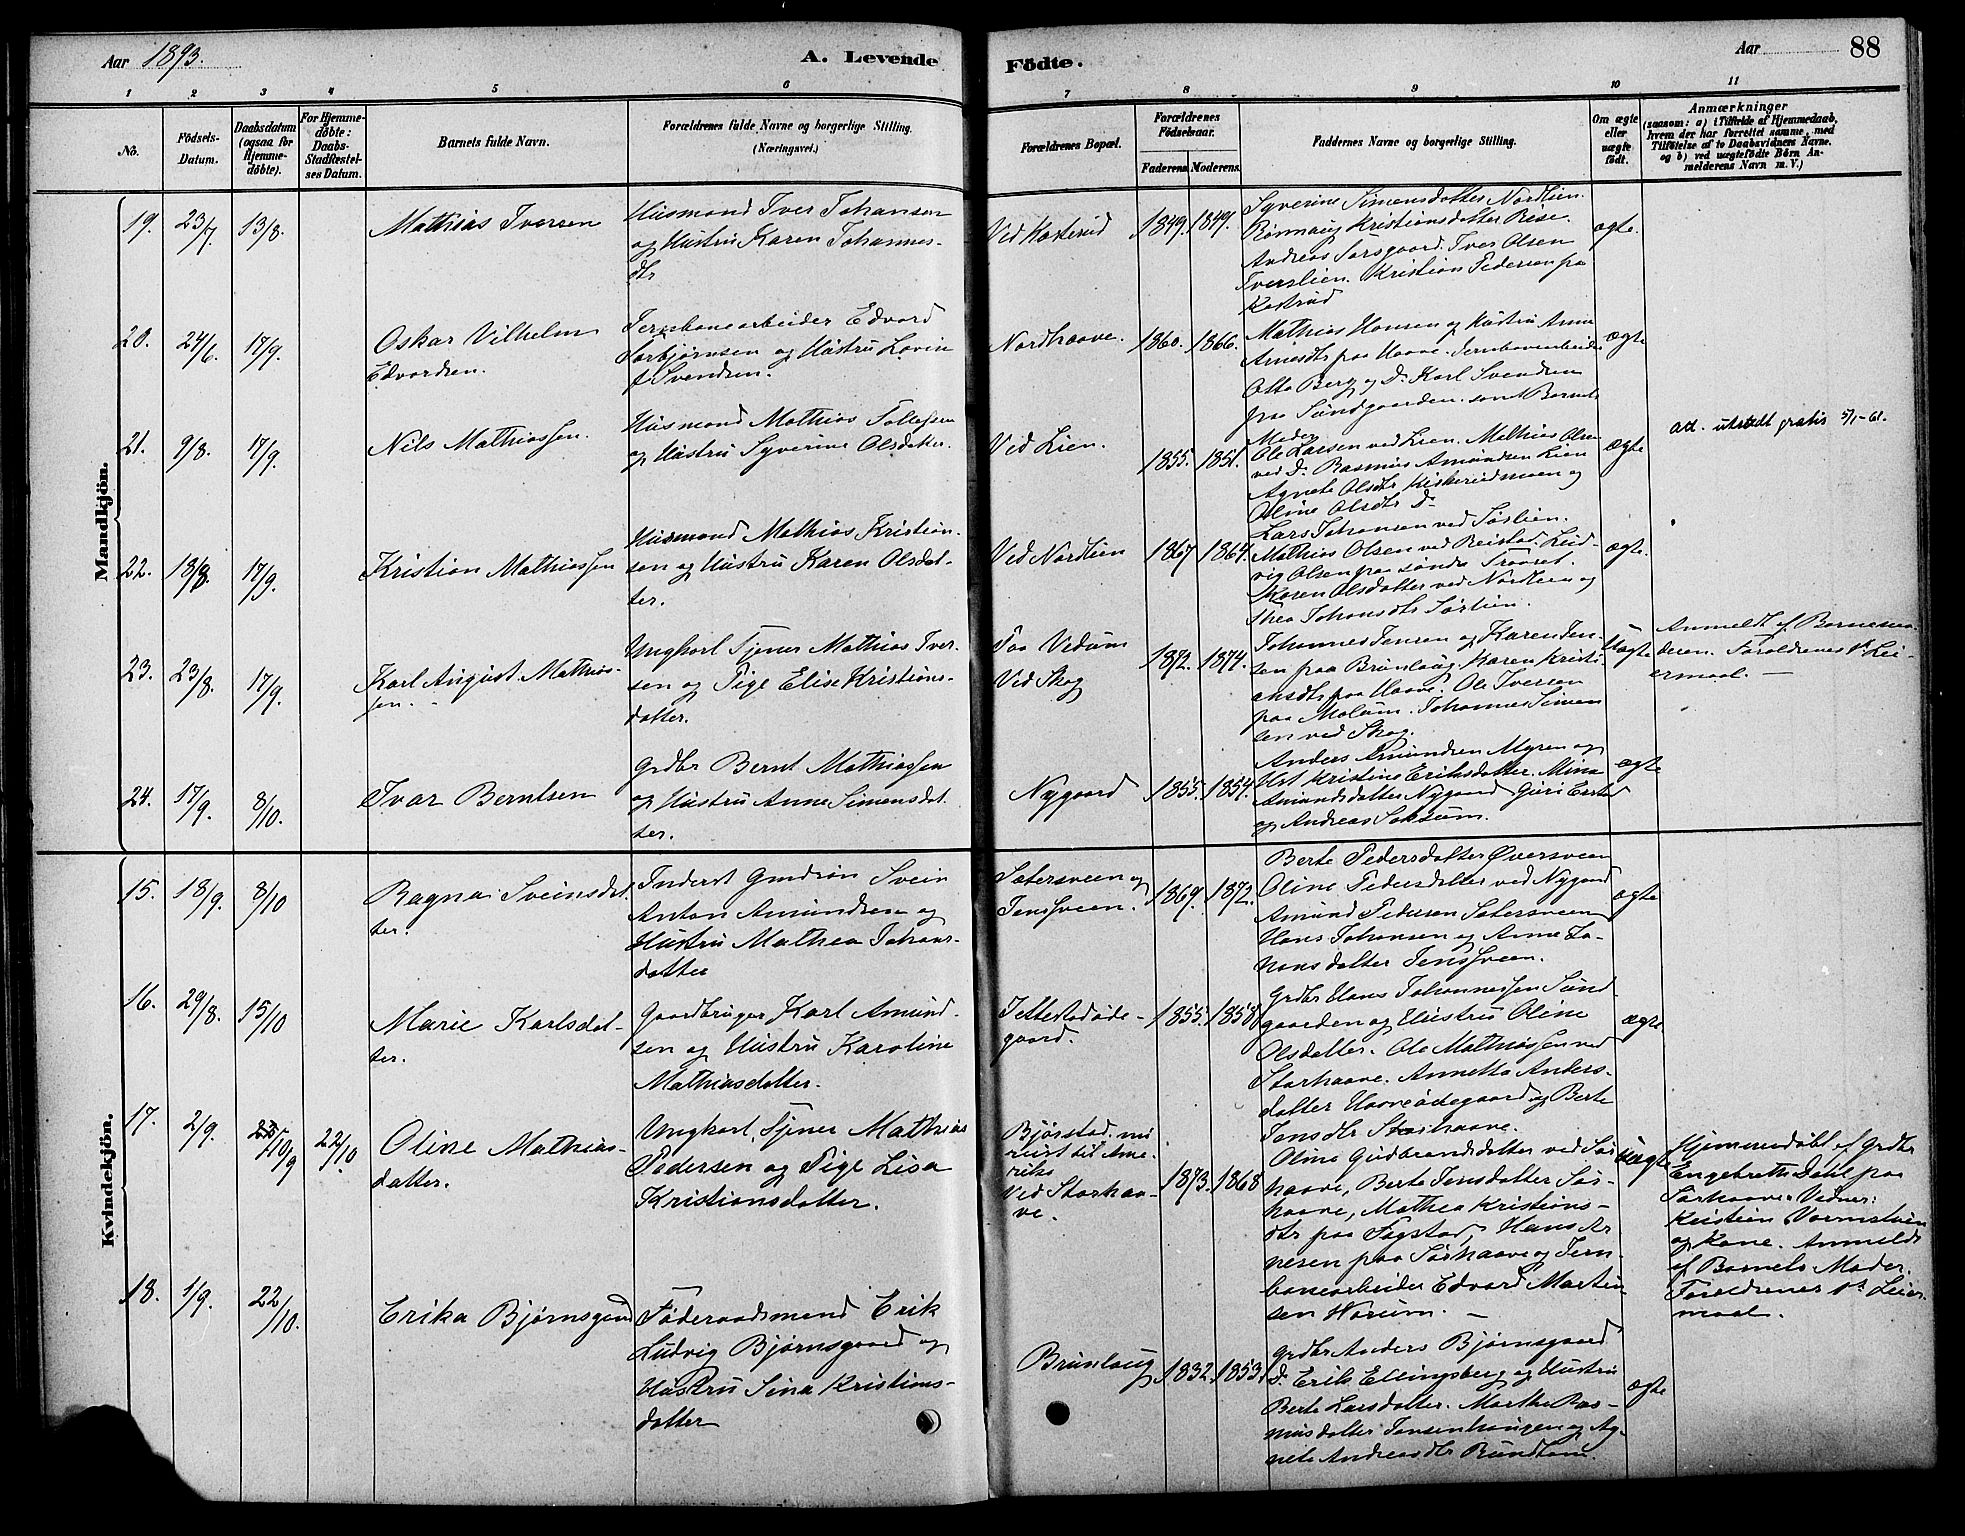 Aar 1893.
A. Levende
Födte.
Aar
88
1
2
3
4
5
6
7
8
9
10
11
No.
Födsels-
Datum.
Daabsdatum
(ogsaa for
Hjemme-
døbte).
For Hjemme-
døbte:
Daabs-
Stadfæstel-
ses Datum.
Barnets fulde Navn.
Forældrenes fulde Navne og borgerlige Stilling.
(Næringsvei.)
Forældrenes Bopæl.
Forældrenes
Födselsaar.
Faderens
Moderens.
Faddernes Navne og borgerlige Stilling.
Om ægte
eller
uægte
födt.
Anmærkninger
(saasom: a) i Tilfælde af Hjemmedaab,
hvem der har forrettet samme, med
Tilföielse af to Daabsvidners Navne.
og b) ved uægtefödte Børn An-
melderens Navn m. V.)
Mandkjön.
19.
23/7
13/8.
Mathias Iversen
Husmand Iver Johansen
og Hustru Karen Johannes-
dtr
Ved Kosterud
1849.
1849.
Syverine Simensdatter Nordlien.
Rønnaug Kristiansdatter Reise.
Andreas Sørsgaard. Iver Olsen
Iverslien. Kristian Pedersen paa
Kostrud
ægte.
20.
24/6.
17/9.
Oskar Vilhelm
Edvardsen.
Jernbanearbeider Edvard
Torbjørnsen og Hustru Lovin
f Svendsen.
Nordhaave.
1860.
1866.
Mathias Hansen og Hustru Anne
Arnesdtr paa Haave. Jernbanearbeider
Otto Berg og Do Karl Svendsen
paa Sundgaarden. samt Barnets
Moder
ægte
21.
9/8.
17/9.
Nils Mathiassen.
Husmand Mathias Tollefsen
og Hustru Syverine Olsdatter.
Ved Lien.
1855.
1851.
Ole Larsen ved Lien. Mathias Olsen
ved Do Rasmus Amundsen Lien
Agnete Olsdtr Kiskerudmoen og
Oline Olsdtr Do
ægte
att. utstedt gratis 5/1-61.
22.
18/8.
17/9.
Kristian Mathiassen
Husmand Mathias Kristian-
sen og Hustru Karen Olsdat-
ter.
Ved Nordlien
1867
1864.
Lars Johansen ved Sørlien.
Mathias Olsen ved Reistad. Lud-
vig Olsen paa søndre Traaset.
Karen Olsdatter ved Nordlien og
Thea Johansdtr Sørlien.
ægte.
23.
23/8.
17/9.
Karl August Mathias-
sen.
Ungkarl Tjener Mathias Iver-
sen og Pige Elise Kristians-
datter.
Paa Vedum
Ved Skog
1872.
1874.
Johannes Jensen og Karen Jen-
sen paa Brunlaug. Karen Kristi-
ansdtr paa Haave. Ole Iversen
paa Molum. Johannes Simen
sen ved Skog.
Uægte
Anmeldt af Barnemo-
deren. Foreldrenes 1ste Lei-
ermaal. —
24.
17/9.
8/10.
Ivar Berntsen
Grdbr Bernt Mathiassen
og Hustru Anne Simensdat-
ter.
Nygaard
1855.
1854.
Anders Amundsen Myren og
Hst Kristine Eriksdatter. Mina
Amundsdatter Nygaard Guri
og Andreas Soksum.
ægte
Kvindekjön.
15.
18/9.
8/10
Ragna Sveinsdat-
ter.
Inderst Gardsøn Svein
Anton Amundsen og
Hustru Mathea Johans-
datter
Sætersveen og
Jenssveen.
1869.
1872.
Berte Pedersdatter Øversveen
Oline Pedersdatter ved Nygaard
Amund Pedersen Sætersveen
Hans Johansen og Anne Jo-
hansdatter Jenssveen.
ægte
16.
29/8.
15/10
Marie Karlsdat-
ter.
Gaardbruger Karl Amund-
sen og Hustru Karoline
Mathiasdatter.
Jettestadøde-
gaard.
1855.
1858.
Grdbr Hans Johannessen Sund-
gaarden og Hustru Oline
Olsdatter. Ole Mathiassen ved
Storhaave. Annette Anders-
datter Haaveødegaard og Berte
Jensdtr Storhaave.
ægte
17.
2/9.
10/9
22/10
Oline Mathias-
datter.
Ungkarl, Tjener Mathias
Pedersen og Pige Lisa
Kristiansdatter.
Bjørstad. nu
reist til Ame-
rika
Ved Storhaa-
ve.
1873.
1868
Oline Gudbrandsdatter ved Sør-
haave, Berte Jensdatter Sør-
haave, Mathea Kristians-
dtr paa Fogstad, Hans Ar-
nesen paa Sørhaave og Jern-
banearbeider Edvard Martin
sen Horum. —
uægte
Hjemmedøbt af Grdbr
Engebreth Dahl paa
Sørhaave. Vidner:
Kristian Vormstuen
og Kone. Anmeldt
af Barnets Moder.
Foreldrenes 1ste Leier
maal.
18.
1/9.
22/10.
Erika Bjørnsgaard
Føderaadsmand Erik
Ludvig Bjørnsgaard og
Hustru Sina Kristians-
datter
Brunlaug
1832.
1853.
Grdbr Anders Bjørnsgaard
Do Erik Ellingsberg og Hustru
Berte Larsdatter. Marthe Ras-
musdatter Jensenhaugen og Ag-
nete Andreasdtr Rundtom.
ægte